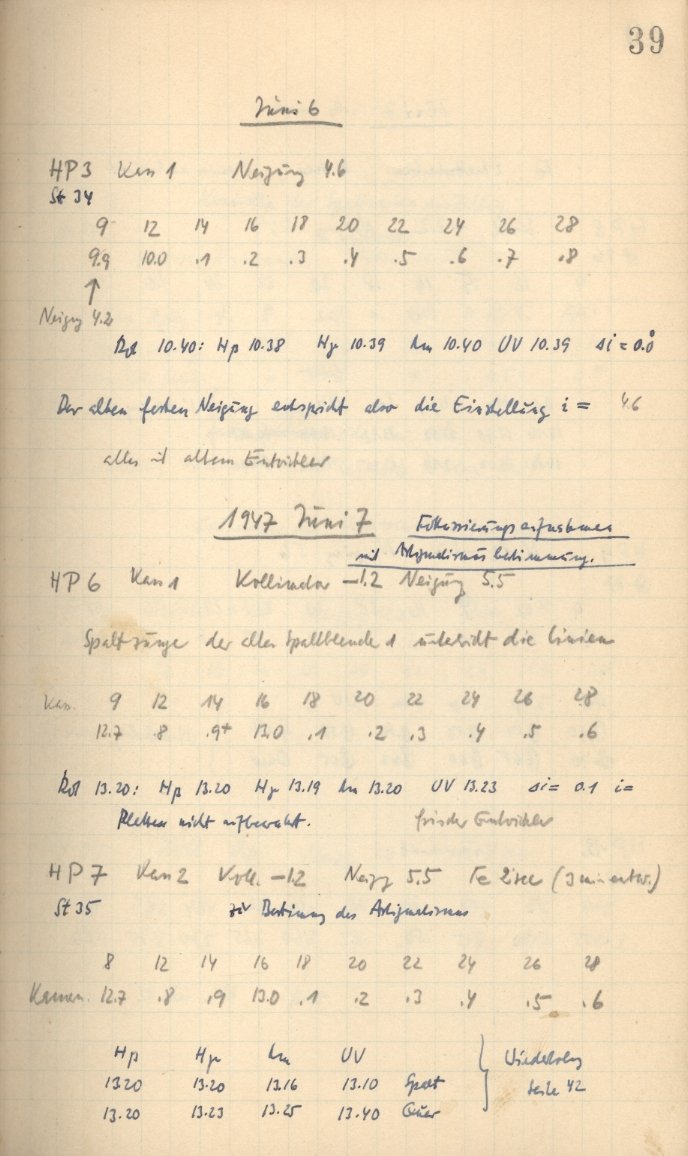 39
Juni 6
HP 3 Kass 1 Neigung 4.6
St 34
9 12 14 16 18 20 22 24 26 28
9.9 10.0 .1 .2 .3 .4 .5 .6 .7 .8
↑
Neigung 4.2
Rot 10.40: Hβ 10.38 Hγ 10.39 10.40 UV 10.39 Δi = 0.0°
Der alten festen Neigung entspricht also die Einstellung i = 4.6
alles mit altem Entwickler
1947 Juni 7 Fokussierungsaufnahmen
mit Astigmatismusbestimmung.
HP 6 Kass 1 Kollimator –1.2 Neigung 5.5
Spaltzunge der alten Spaltblende 1 die Linien
Kam. 9 12 14 16 18 20 22 24 26 28
12.7 .8 .9+ 13.0 .1 .2 .3 .4 .5 .6
Rot 13.20: Hβ 13.20 Hγ 13.19 13.20 UV 13.23 Δi = 0.1 i =
Platten nicht aufbewahrt. frischer Entwickler
HP 7 Kass 2 Koll. –1.2 Neigg 5.5 Te 2 sec (3 min entw.)
St 35 zur Bestimmung des Astigmatismus
8 12 14 16 18 20 22 24 26 28
Kamera. 12.7 .8 .9 13.0 .1 .2 .3 .4 .5 .6
Hβ Hγ UV Wiederholung
13.20 13.20 13.16 13.10 Spalt Seite 42
13.20 13.23 13.25 13.40 Quer